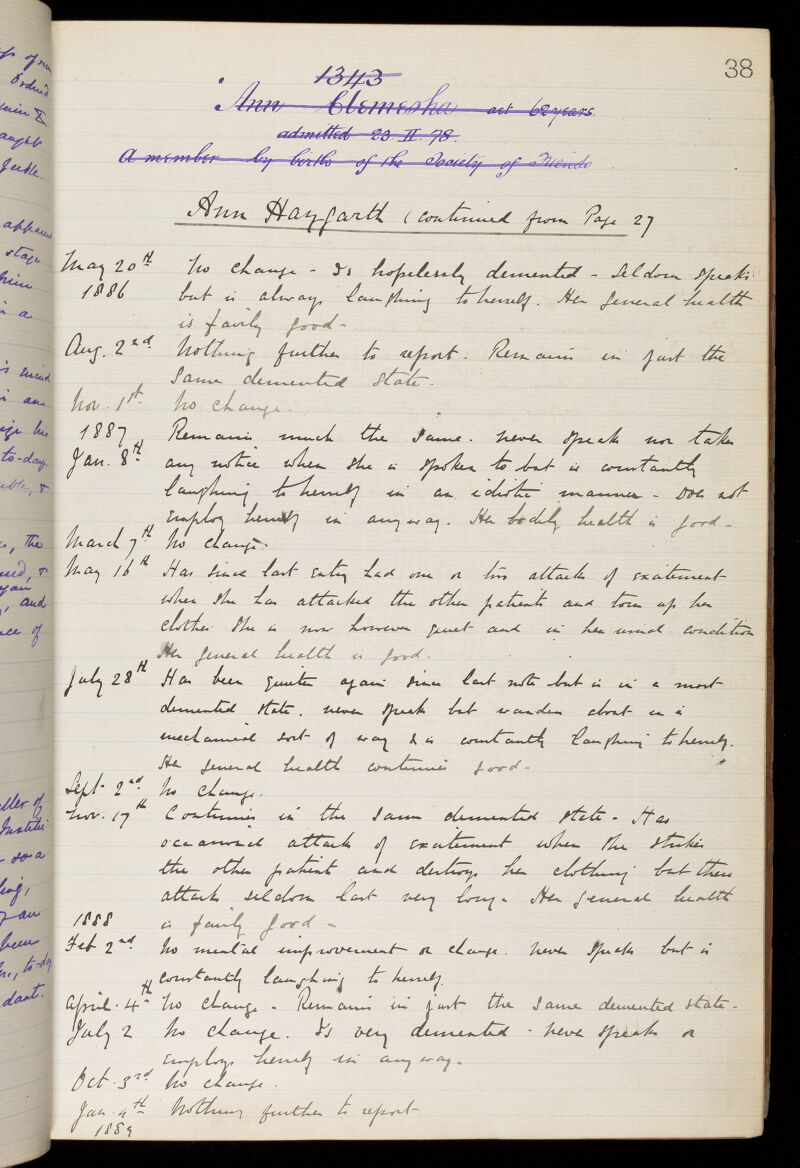 38
1343
Ann Clemesha aet 62 years.
admitted 23. II. 98.
A member by birth of the Society of Friends.
Ann Haygarth (continued from Page 27
May 20th No change - Is hopelessly demented - Seldom speaks
1886 but is always laughing to herself. Her general health
is fairly good -
Aug. 2nd Nothing further to report. Remains in just the
same demented state.
Nov. 1st No change.
1887 Remains much the same. Never speaks nor takes
Jan. 8th any notice when she is spoken to but is constantly
laughing to herself in an idiotic manner - Does not
employ herself in any way. Her bodily health is good -
March 7th No change.
May 16th Has since last entry had one or two attacks of excitement
when she has attacked the other patients and torn up her
clothes. She is now however quiet and in her usual condition
Her general health is good.
July 28th Has been quieter again since last note but is in a most
demented state. Never speaks but wanders about in a
mechanical sort of way & is constantly laughing to herself.
Her general health continues good -
Sept. 2nd No change.
Nov. 17th Continues in the same demented state - Has
occasional attacks of excitement when she strikes
the other patients and destroys her clothing but these
attacks seldom last very long. Her general health
1888 is fairly good -
Feb 2nd No mental improvement or change. Never speaks but is
constantly laughing to herself.
April. 4th No change - Remains in just the same demented state -
July 2 No change. Is very demented - never speaks or
employs herself in any way.
Oct. 3rd No change.
Jan. 4th Nothing further to report
1889